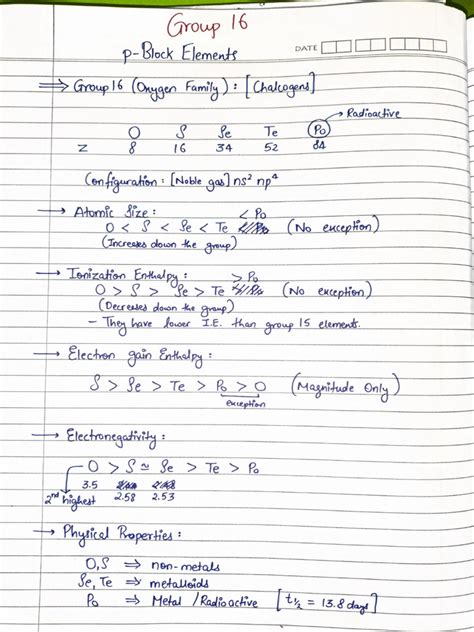 Group 16
p-Block Elements
DATE
⟹ Group 16 (Oxygen Family) : [Chalcogens]
→ Radioactive
O S Se Te Po
Z 8 16 34 52 84
Configuration : [Noble gas] ns² np⁴
→ Atomic Size :
O < S < Se < Te < Po (No exception)
(Increases down the group)
→ Ionization Enthalpy :
O > S > Se > Te > Po (No exception)
(Decreases down the group)
- They have lower I.E. than group 15 elements.
→ Electron gain Enthalpy :
S > Se > Te > Po > O (Magnitude Only)
exception
→ Electronegativity :
O > S ≃ Se > Te > Po
3.5 2.58 2.53
2nd highest
→ Physical Properties :
O, S ⇒ non-metals
Se, Te ⇒ metalloids
Po ⇒ Metal / Radioactive [t½ = 13.8 days]